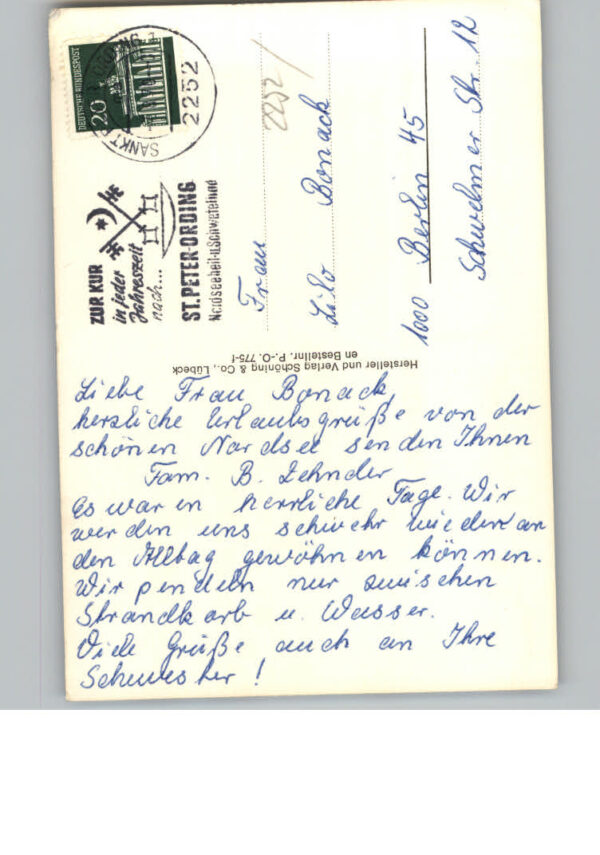 DEUTSCHE BUNDESPOST
20
SANKT
2252
ZUR KUR
in jeder
Jahreszeit
nach...
ST. PETER-ORDING
Nordseeheil-u.Schwefelbad
2252
Frau
Lilo Bonack
1000 Berlin 45
Schwelmer Str. 12
Hersteller und Verlag Schöning & Co., Lübeck
en Bestellnr. P.-O. 775-f
Liebe Frau Bonack,
herzliche Urlaubsgrüße von der
schönen Nordsee senden Ihnen
Fam. B. Zehnder
Es waren herrliche Tage. Wir
werden uns schwehr wieder an
den Alltag gewöhnen können.
Wir pendeln nur zwischen
Strandkorb u. Wasser.
Viele Grüße auch an Ihre
Schwester!